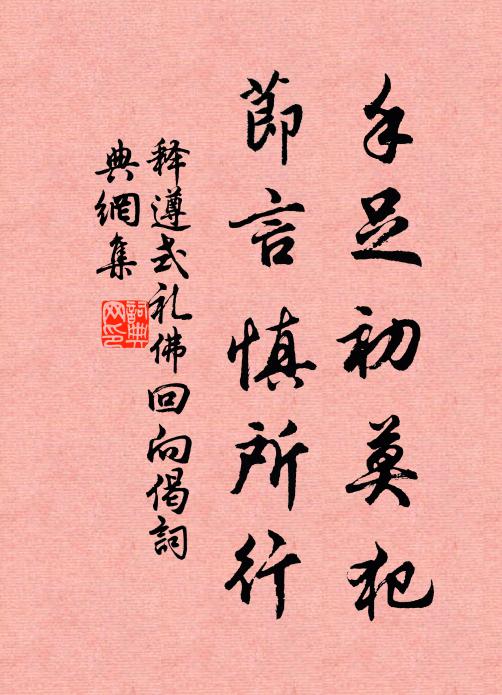 手足初莫犯
節言慎所行
释遵式礼佛回向偈詞
典網集
詞典
网印